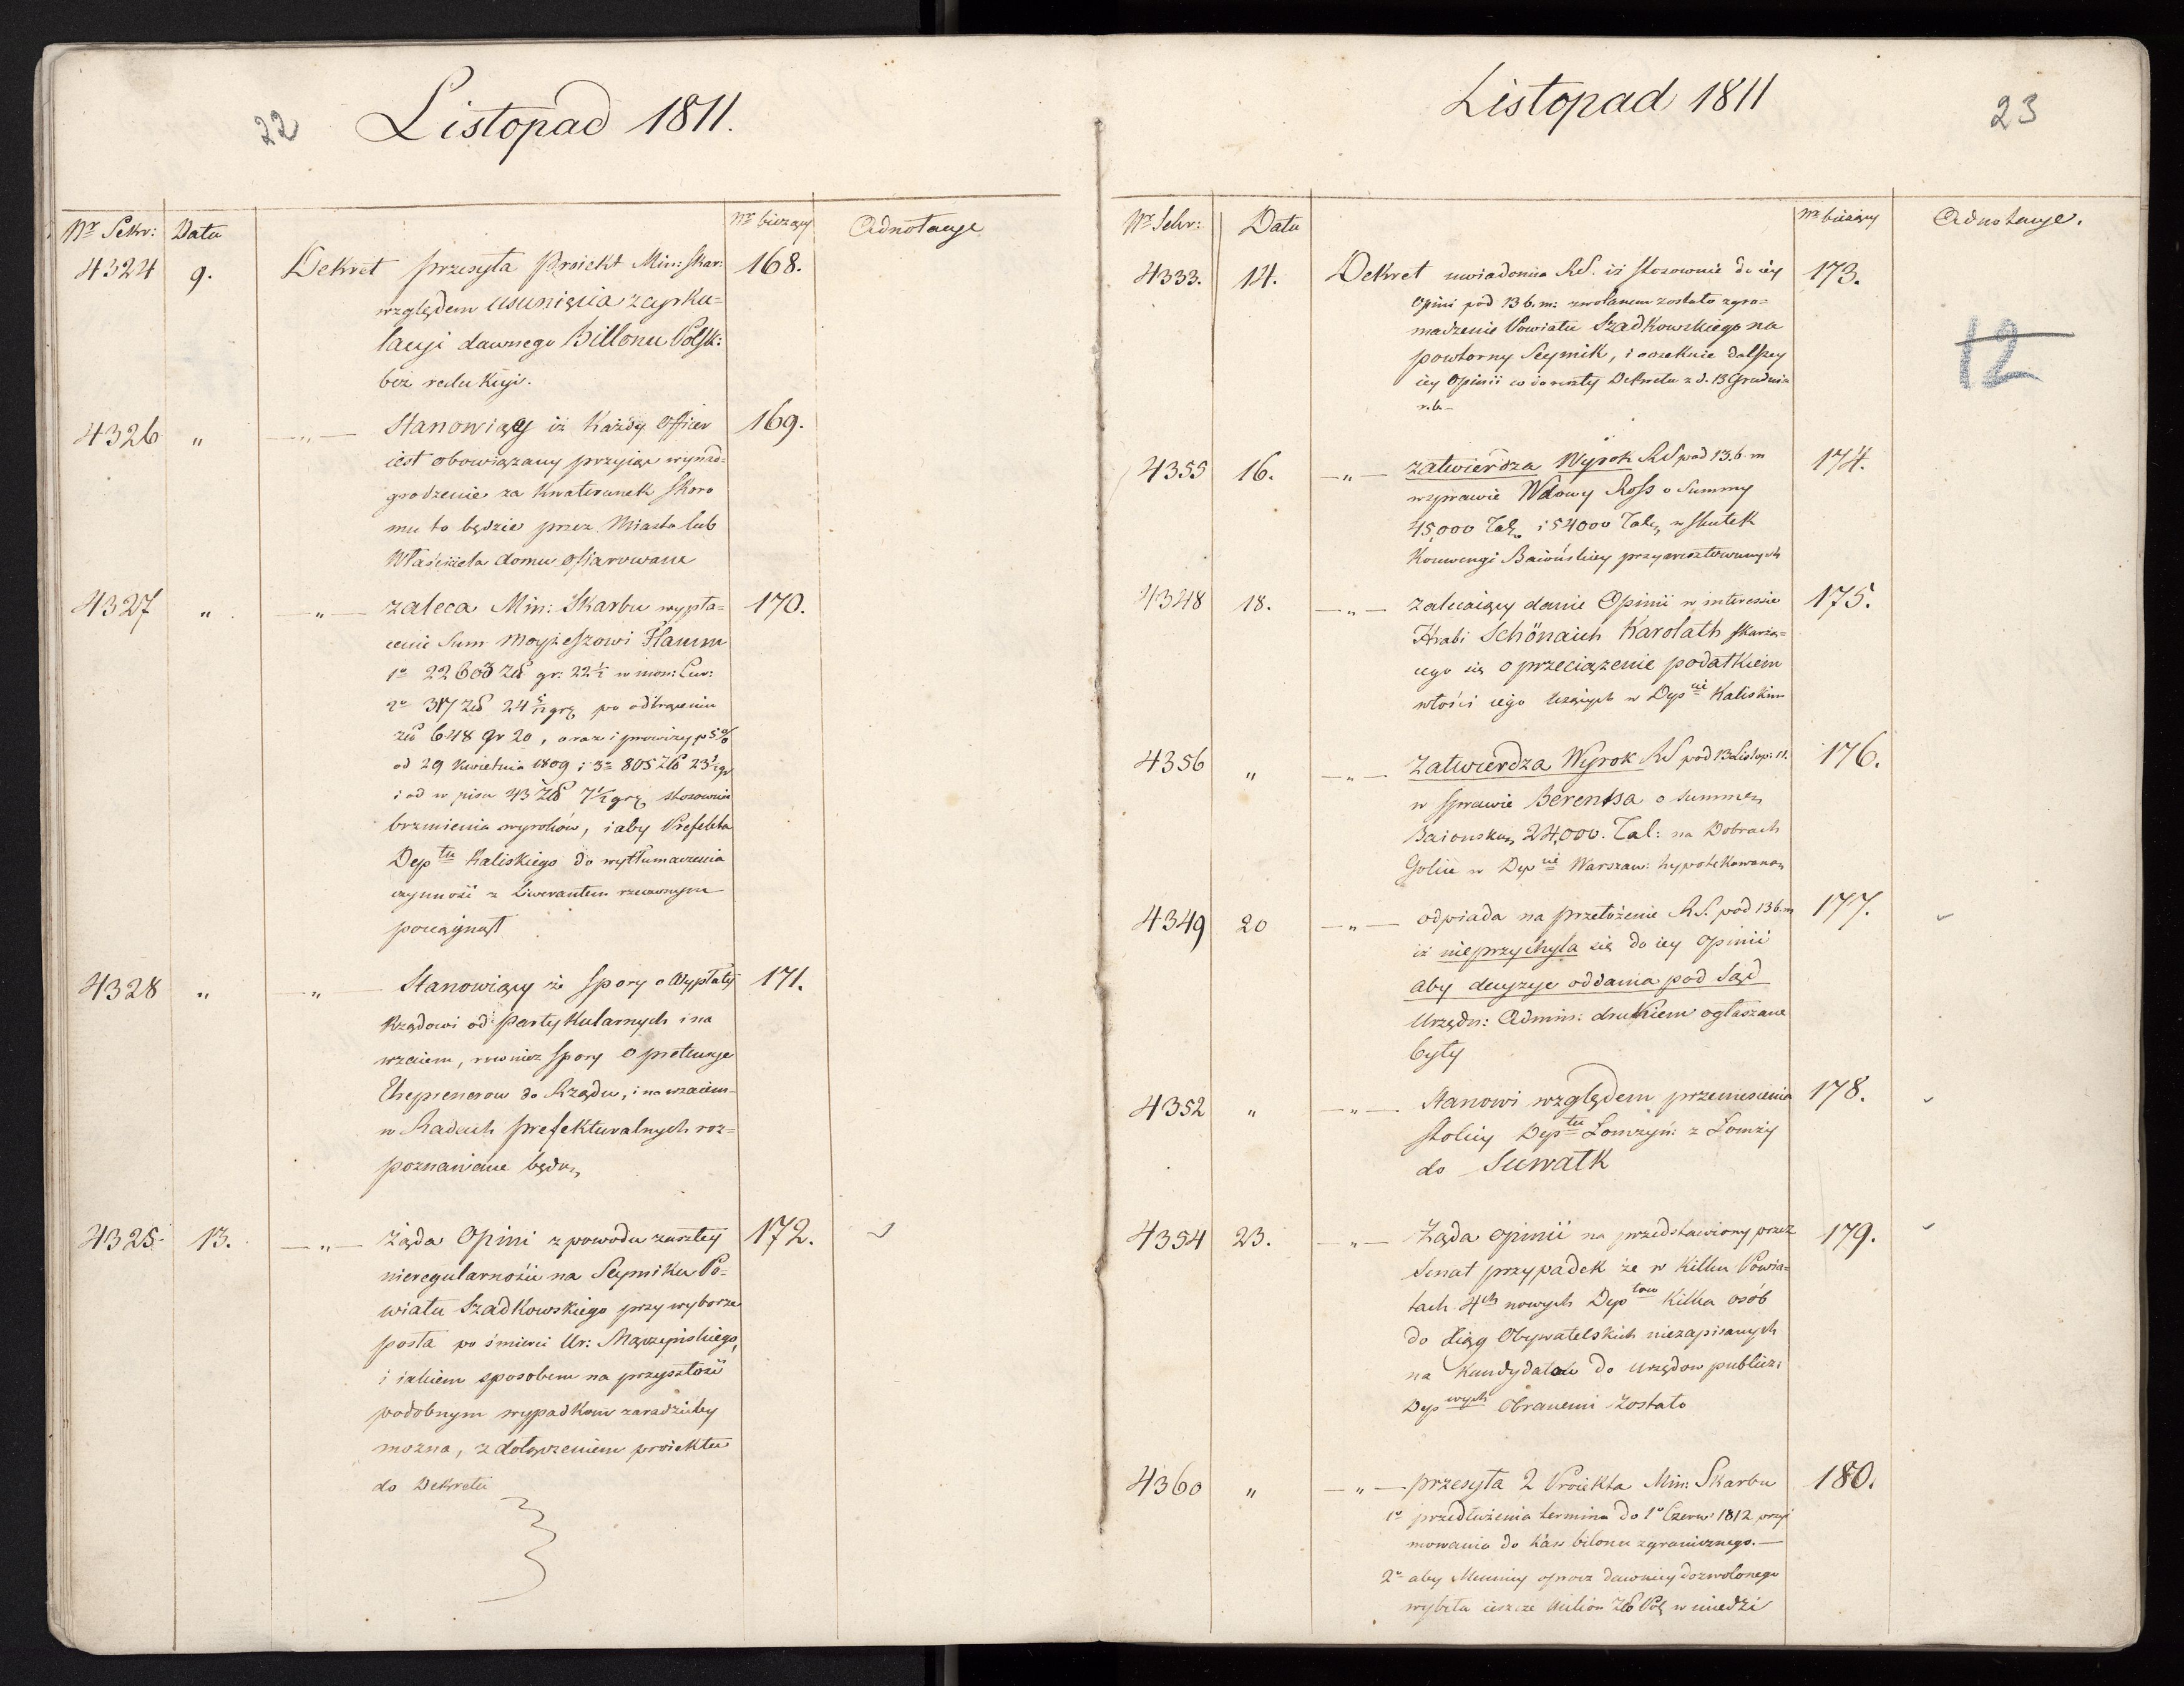 22 Listopad 1811.
Nr Sekr: Data Nr bieżący Adnotacye
4324 9. Dekret przesyła Proiekt Min: skar: 168.
względem usunięcia zcyrku=
lacyi dawnego Billonu Polsk:
bez redukcyi.
4326 " — " — Stanowiący iż każdy Officer 169.
iest obowiązany przyiąć wyna=
grodzenie za kwaterunek skoro
mu to będzie przez Miasto lub
Właściciela domu ofiarowane
4327 " — " — zaleca Min: Skarbu wypła= 170.
cenie Sum Moyżeszowi Hamm
1o 22603 zł gr: 22½ w mon: Cur:
2o 317 zł 24 5/12 gr po odtrąceniu
zł 648 gr 20, oraz i prowizyi p 5%
od 29 Kwietnia 1809 i 3o 805 Zł 23½ gr
i od w pisu 43 Zł 7½ gr stosownie
brzmienia wyroków, i aby Prefekta
Deptu Kaliskiego do wytłumaczenia
czynności z Liwerantem rzeczonym
pociągnął
4328 " — " — Stanowiący że spory o Wypłaty 171.
Rządowi od Partykularnych i na
wzaiem, rownież spory o pretensye
Entreprenerow do Rządu, i nawzaiem
w Radach Prefekturalnych roz=
poznawane będą
4325 13. — " — żąda Opinii z powodu zaszłey 172.
nieregularności na Seymiku Po=
wiatu Szadkowskiego przy wyborze
posła po śmierci Ur: Mączyńskiego,
i iakiem sposobem na przyszłość
podobnym wypadkom zaradzićby
można, z dołączeniem proiektu
do Dekretu
Listopad 1811 23
Nr Sekr: Data Nr bieżący Adnotacye.
4333. 14. Dekret uwiadomia RS. iż stosownie do iey 173.
Opinii pod 13 b. m: zwołanem zostało zgro=
madzenie Powiatu Szadkowskiego na
powtorny Seymik, i oczekuie dalszey
iey Opinii co do reszty Dekretu z d. 13 Grudnia
r. b. —
12
4355 16. " — zatwierdza Wyrok RS pod 13. b. m 174.
w sprawie Wdowy Ross o Summy
45,000 Tal i 54000 Tal, w skutek
Konwencyi Baiońskiey przyaresztowanych
4348 18. — " — zalecaiący danie Opinii w interessie 175.
Hrabi Schönaich Karolath skarżą=
cego się o przeciążenie podatkiem
włości iego leżących w Depcie Kaliskim
4356 " — " — zatwierdza Wyrok RS pod 13 Listop: 11. 176.
w sprawie Berensa o Summę
Baionską 24,000. Tal: na Dobrach
Golice w Depcie Warszaw: hypotekowaną
4349 20 — " — odpiada na przełożenie RS. pod 13 b. m 177.
iż nieprzychyla się do iey opinii
aby decyzye oddania pod Sąd
Urzędn: Admin: drukiem ogłaszane
były
4352 " — " — Stanowi względem przeniesienia 178.
stolicy Deptu Łomżyń: z Łomży
do Suwałk
4354 23. — " — Żąda opinii na przedstawiony przez 179.
Senat przypadek że w kilku Powia=
tach 4ch nowych Deptow kilka osób
do Xiąg Obywatelskich niezapisanych
na Kandydatow do Urzędow publicz:
Depwych Obranemi zostało
4360 " — " — przesyła 2 Proiekta Min: Skarbu 180.
1o przedłużenia terminu do 1o Czerw: 1812 przyi
mowania do Kass bilonu zgranicznego. —
2o aby Mennicy oprocz dawniey dozwolonego
wybiła ieszcze Milion Zł Pol w miedzi